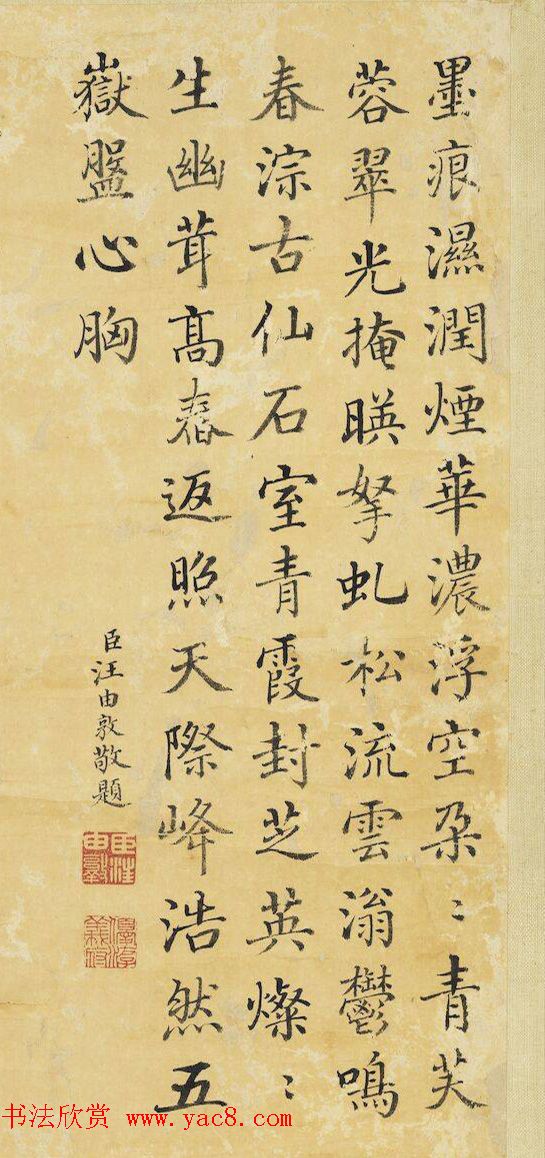 墨痕濕潤煙華濃浮空朶〻青芙
蓉翠光掩暎拏虬松流雲滃鬱鳴
春淙古仙石室青霞封芝英燦〻
生幽茸高舂返照天際峰浩然五
嶽盪心胸
臣汪由敦敬題
臣汪由敦
书法欣赏 www.yac8.com